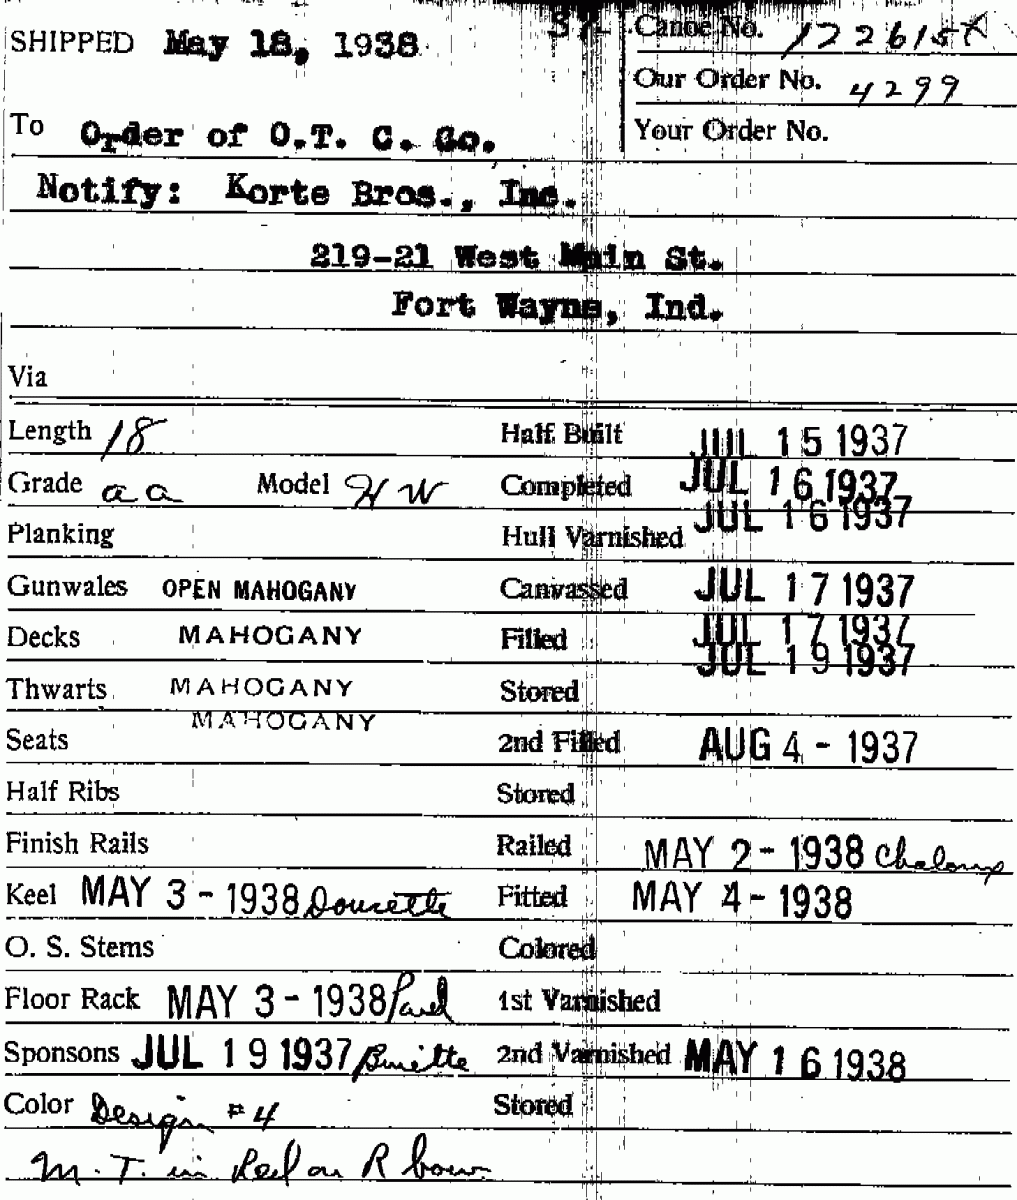 SHIPPED May 18, 1938
Canoe No. 122615
Our Order No. 4299
To Order of O.T. C. Co.
Your Order No.
Notify: Korte Bros., Inc.
219-21 West Main St.
Fort Wayne, Ind.
Via
Length 18 Half Built JUL 15 1937
Grade aa Model HW Completed JUL 16 1937
Planking Hull Varnished JUL 16 1937
Gunwales OPEN MAHOGANY Canvassed JUL 17 1937
Decks MAHOGANY Filled JUL 17 1937
Thwarts MAHOGANY Stored JUL 19 1937
Seats MAHOGANY 2nd Filled AUG 4 - 1937
Half Ribs Stored
Finish Rails Railed MAY 2 - 1938
Keel MAY 3 - 1938 Doucette Fitted MAY 4 - 1938
O. S. Stems Colored
Floor Rack MAY 3 - 1938 1st Varnished
Sponsons JUL 19 1937 2nd Varnished MAY 16 1938
Color Design #4 Stored
M. T. in Red on R bow